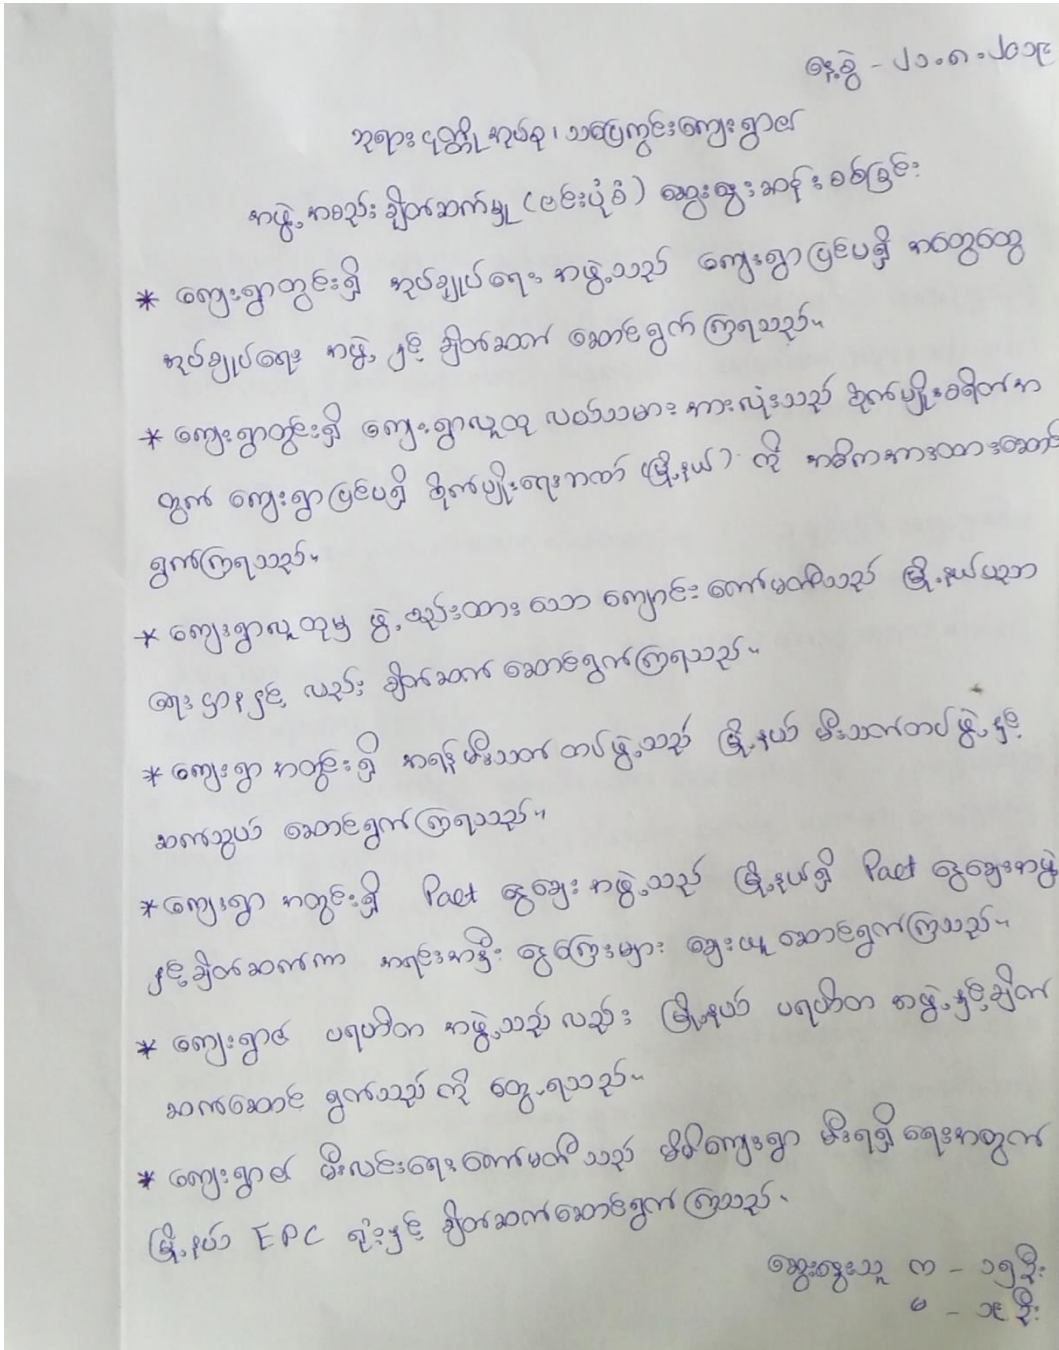 နေ့စွဲ - ၂၁.၈.၂၀၁၉
ဘုရားပုတ္တိုအုပ်စု၊ သပြေကွင်းကျေးရွာ၏
အဖွဲ့အစည်းချိတ်ဆက်မှု (ဗင်းပုံစံ) ဆွေးနွေးဆန်းစစ်ခြင်း
* ကျေးရွာတွင်းရှိ အုပ်ချုပ်ရေး အဖွဲ့သည် ကျေးရွာပြင်ပရှိ အထွေထွေ
အုပ်ချုပ်ရေး အဖွဲ့ နှင့် ချိတ်ဆက် ဆောင်ရွက်ကြရသည်။
* ကျေးရွာတွင်းရှိ ကျေးရွာလူထု လယ်သမား အားလုံးသည် စိုက်ပျိုးစရိတ်အ
တွက် ကျေးရွာပြင်ပရှိ စိုက်ပျိုးရေးဘဏ် (မြို့နယ်) ကို အဓိကအားထားဆောင်
ရွက်ကြရသည်။
* ကျေးရွာလူထုမှ ဖွဲ့စည်းထားသော ကျောင်းကော်မတီသည် မြို့နယ်ပညာ
ရေးဌာနနှင့် လည်း ချိတ်ဆက် ဆောင်ရွက်ကြရသည်။
* ကျေးရွာ အတွင်းရှိ အရန်မီးသတ်တပ်ဖွဲ့သည် မြို့နယ် မီးသတ်တပ်ဖွဲ့နှင့်
ဆက်သွယ် ဆောင်ရွက်ကြရသည်။
* ကျေးရွာ အတွင်းရှိ Pact ငွေချေးအဖွဲ့သည် မြို့နယ်ရှိ Pact ငွေချေးအဖွဲ့
နှင့်ချိတ်ဆက်ကာ အရင်းအနှီး ငွေကြေးများ ချေးယူဆောင်ရွက်ကြသည်။
* ကျေးရွာ၏ ပရဟိတ အဖွဲ့သည်လည်း မြို့နယ် ပရဟိတ အဖွဲ့နှင့်ချိတ်
ဆက်ဆောင် ရွက်သည်ကို တွေ့ရသည်။
* ကျေးရွာ၏ မီးလင်းရေးကော်မတီသည် မိမိကျေးရွာ မီးရရှိရေးအတွက်
မြို့နယ် EPC ရုံးနှင့် ချိတ်ဆက်ဆောင်ရွက်ကြသည်။
ဆွေးနွေးသူ က - ၁၅ဦး
မ - ၁၉ဦး